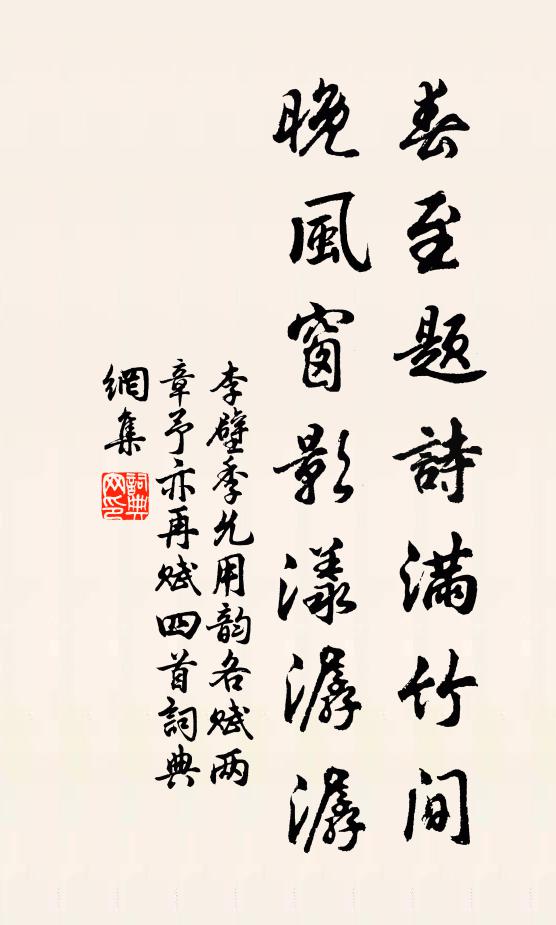 春至題詩滿竹間
晚風窗影漾潺潺
李壁季允用韵各赋两
章予亦再赋四首詞典
網集
詞典
网印